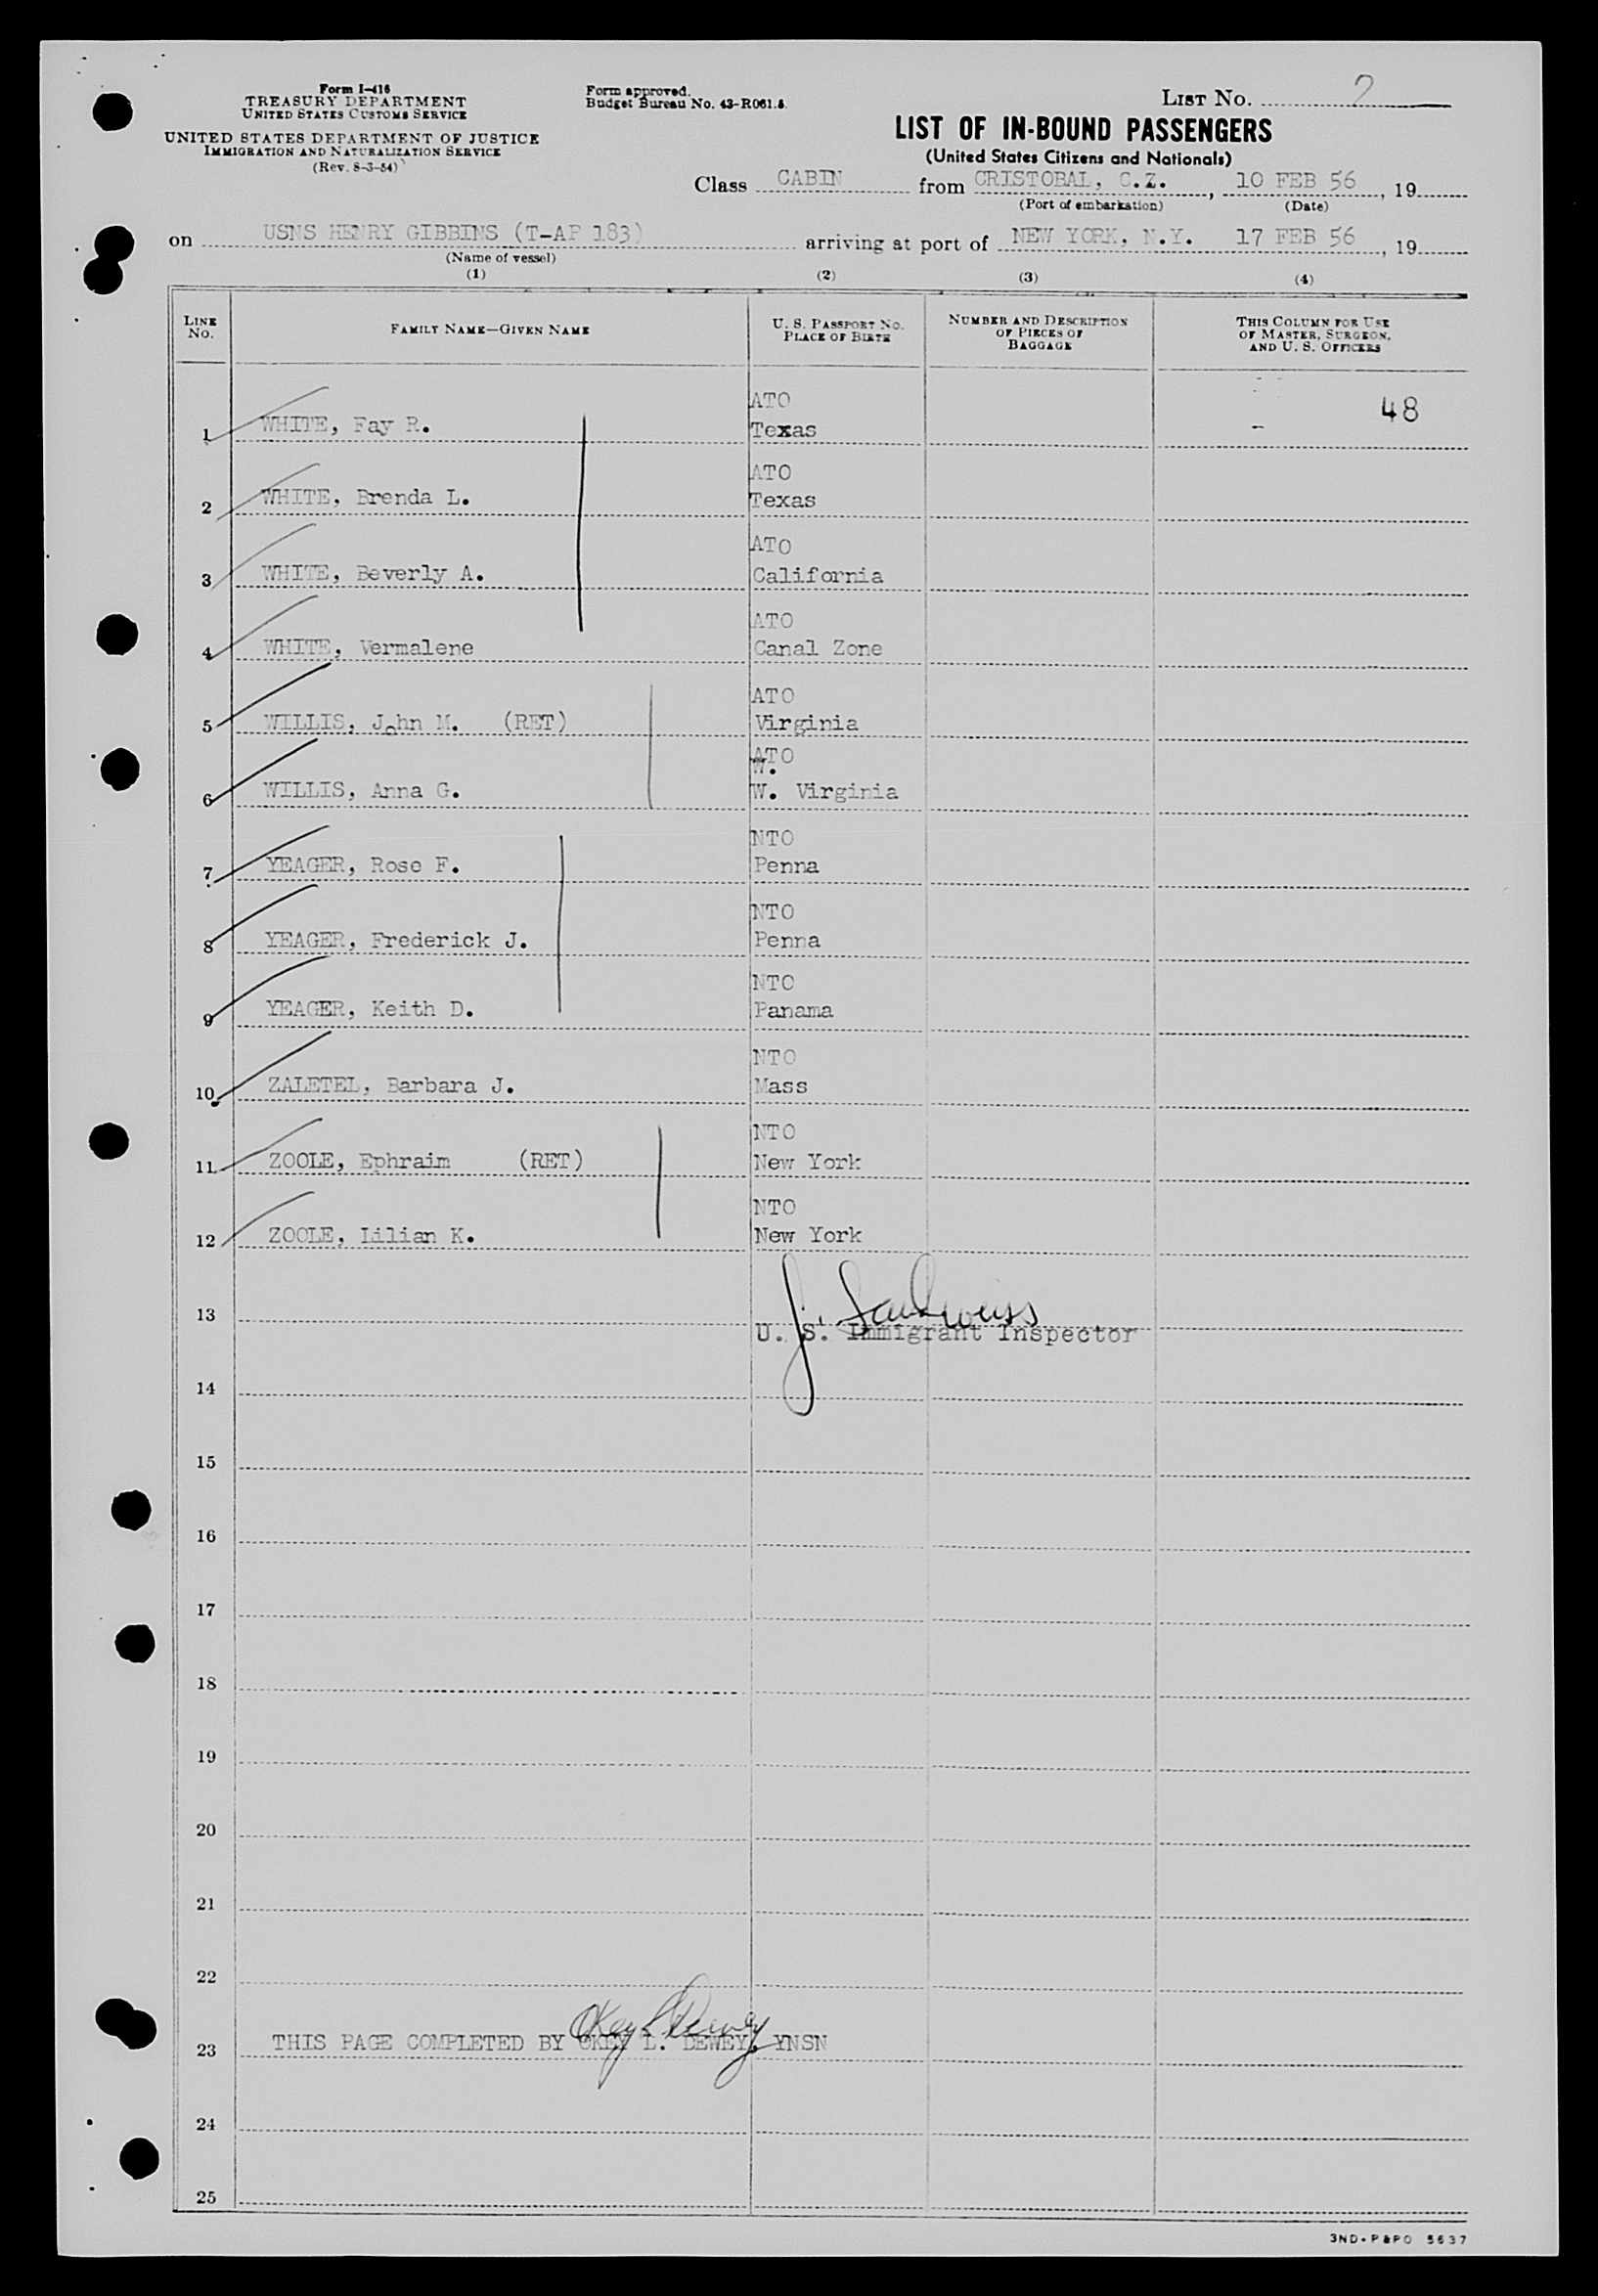 Form I-416
TREASURY DEPARTMENT
UNITED STATES CUSTOMS SERVICE
UNITED STATES DEPARTMENT OF JUSTICE
IMMIGRATION AND NATURALIZATION SERVICE
(Rev. 8-3-54)
Form approved.
Budget Bureau No. 43-R061.8.
LIST NO. 2
LIST OF IN-BOUND PASSENGERS
(United States Citizens and Nationals)
Class CABIN from CRISTOBAL, C.Z., 10 FEB 56, 19
(Port of embarkation) (Date)
on USNS HENRY GIBBINS (T-AP 183) arriving at port of NEW YORK, N.Y. 17 FEB 56, 19
(Name of vessel)
(1) (2) (3) (4)
LINE NO. FAMILY NAME—GIVEN NAME U. S. PASSPORT NO. PLACE OF BIRTH NUMBER AND DESCRIPTION OF PIECES OF BAGGAGE THIS COLUMN FOR USE OF MASTER, SURGEON, AND U. S. OFFICERS
ATO 48
1 WHITE, Fay R. Texas
ATO
2 WHITE, Brenda L. Texas
ATO
3 WHITE, Beverly A. California
ATO
4 WHITE, Vermalene Canal Zone
ATO
5 WILLIS, John M. (RET) Virginia
ATO
W.
6 WILLIS, Anna G. W. Virginia
NTO
7 YEAGER, Rose F. Penna
NTO
8 YEAGER, Frederick J. Penna
NTO
9 YEAGER, Keith D. Panama
NTO
10 ZALETEL, Barbara J. Mass
NTO
11 ZOOLE, Ephraim (RET) New York
NTO
12 ZOOLE, Lilian K. New York
13
U. S. Immigrant Inspector
14
15
16
17
18
19
20
21
22
Okey L Dewey
23 THIS PAGE COMPLETED BY OKEY L. DEWEY, YNSN
24
25
3ND-P&PO 5637